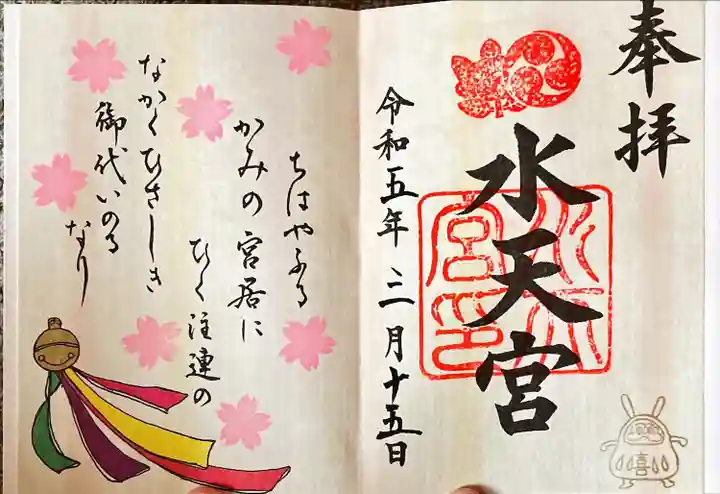 奉拝
水天宮
水天宮印
令和五年三月十五日
ちはやふる
かみの宮居に
ひく注連の
なかくひさしき
御代いのる
なり
喜